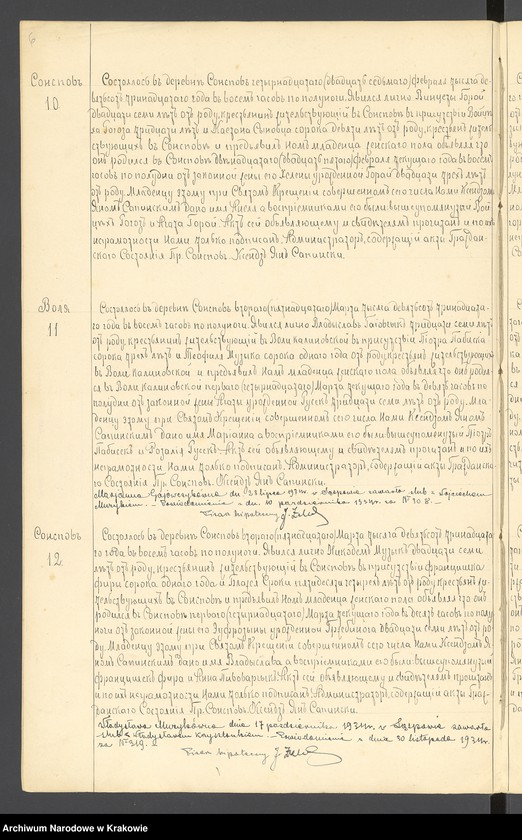 6
Сонсповъ
10
Состоялось въ деревнѣ Сонсповъ четырнадцатаго (двадцать седьмого) Февраля тысяча де-
вятьсотъ тринадцатаго года въ восемь часовъ по полуночи. Явился лично Винценты Горай
двадцати семи лѣтъ отъ роду, крестьянинъ жительствующій въ Сонсповѣ въ присутствіи Войцѣ-
ха тридцати лѣтъ и сорока девяти лѣтъ отъ роду, крестьянъ житель-
ствующихъ въ Сонсповѣ и предъявилъ Намъ младенца женскаго пола объявляя что
онъ родился въ Сонсповѣ двѣнадцатаго (двадцать пятаго) Февраля текущаго года въ восемь
часовъ по полудни отъ законной жены его Елены урожденной Горай двадцати трехъ лѣтъ
отъ роду. Младенцу этому при Святомъ Крещеніи совершенномъ сего числа Нами Ксендзомъ
Яномъ Сапинскимъ дано имя а воспріемниками его были вышеупомянутый Вой-
цѣхъ и Агата Горай. Актъ сей объявляющему и свидѣтелямъ прочитанъ и по ихъ
неграмотности Нами только подписанъ. Администраторъ, содержащій акты Граждан-
скаго Состоянія Пр. Сонсповъ Ксендзъ Янъ Сапински.
Воля
11
Состоялось въ деревнѣ Сонсповъ втораго (пятнадцатаго) Марта тысяча девятьсотъ тринадцата-
го года въ восемь часовъ по полуночи. Явился лично Владиславъ тридцати семи лѣтъ
отъ роду, крестьянинъ жительствующій въ Воли Калиновской въ присутствіи Петра Бабиска
сорока трехъ лѣтъ и Теофиля Музыка сорока одного года отъ роду, крестьянъ жительствующихъ
въ Воли Калиновской и предъявилъ Намъ младенца женскаго пола объявляя что оно родил-
ся въ Воли Калиновской перваго (четырнадцатаго) Марта текущаго года въ девять часовъ по
полудни отъ законной жены Агаты урожденной Гусекъ тридцати семи лѣтъ отъ роду. Мла-
денцу этому при Святомъ Крещеніи совершенномъ сего числа Нами Ксендзомъ Яномъ
Сапинскимъ дано имя Маріанна а воспріемниками его были вышеупомянутый Петръ
и Розалія Гусекъ. Актъ сей объявляющему и свидѣтелямъ прочитанъ и по ихъ
неграмотности Нами только подписанъ. Администраторъ, содержащій акты Гражданска-
го Состоянія Пр. Сонсповъ. Ксендзъ Янъ Сапински.
Marjanna dn 23 lipca 1934r. w Sąspowie zawarła ślub z Wojciechem
Muzykiem. - Zawiadomienie z dn. 10 października 1934r. za №
J.
Сонсповъ
12
Состоялось въ деревнѣ Сонсповъ втораго (пятнадцатаго) Марта тысяча девятьсотъ тринадцата-
го года въ восемь часовъ по полуночи. Явился лично Никодемъ Музыкъ двадцати семи
лѣтъ отъ роду, крестьянинъ жительствующій въ Сонсповѣ въ присутствіи Францишка
Фира сорока одного года и Сроки пятидесяти четырехъ лѣтъ отъ роду, крестьянъ жи-
тельствующихъ въ Сонсповѣ и предъявилъ Намъ младенца женскаго пола объявляя что онъ
родился въ Сонсповѣ перваго (четырнадцатаго) Марта текущаго года въ десять часовъ по полу-
ночи отъ законной жены его Евфрозыны урожденной Гребинога двадцати семи лѣтъ отъ ро-
ду. Младенцу этому при Святомъ Крещеніи совершенномъ сего числа Нами Ксендзомъ Я-
номъ Сапинскимъ дано имя Владыслава а воспріемниками его были вышеупомянутый
Францишекъ Фира и Анна Пивоварчыкъ. Актъ сей объявляющему и свидѣтелямъ прочитанъ
и по ихъ неграмотности Нами только подписанъ. Администраторъ, содержащій акты Граж-
данскаго Состоянія Пр. Сонсповъ. Ксендзъ Янъ Сапински.
Władysława Muzykówna dnia 17 października 1931r. w Sąspowie zawarła
ślub z Władysławem - Zawiadomienie z dnia 30 listopada 1931r.
za № 319.
J.
Archiwum Narodowe w Krakowie